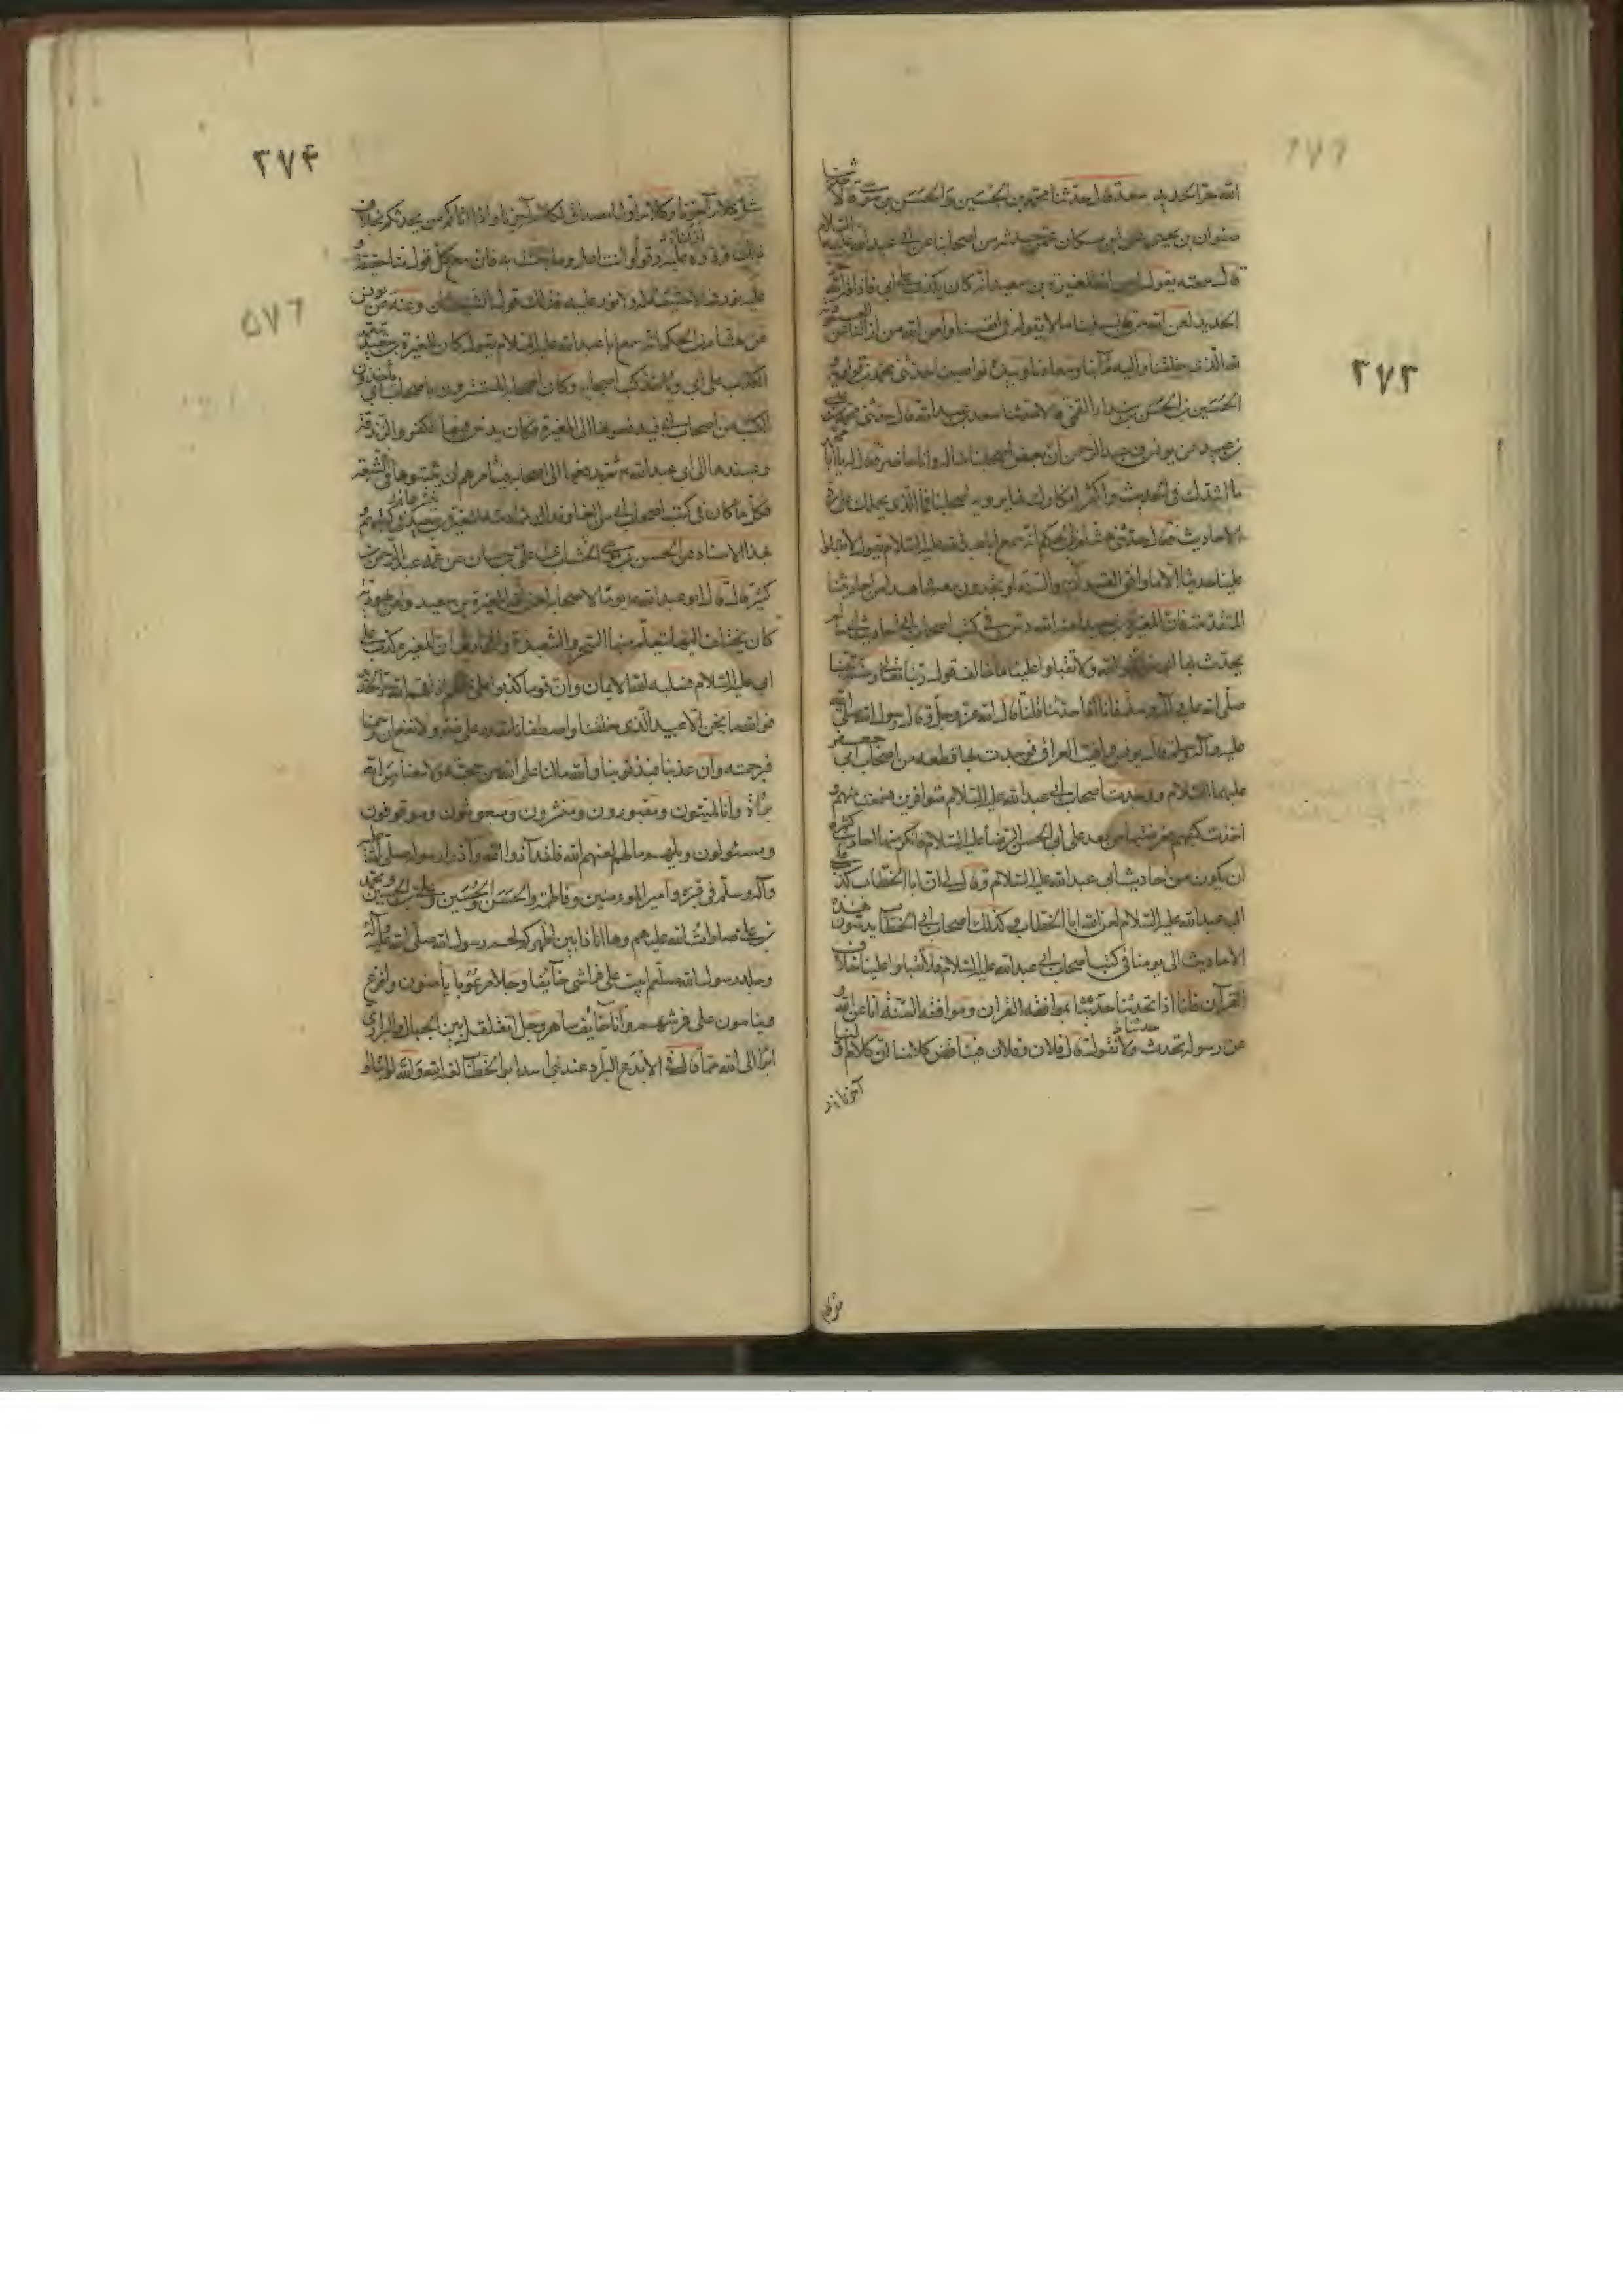 ٣٧٣
الله حر الحديد سعد قال حدثنا محمد بن الحسين والحسن بن موسى قالا ثنا
صفوان بن يحيى عن ابن مسكان عمن حدثه من اصحابنا عن ابي عبدالله عليه السلام
قال سمعته يقول لعن الله المغيرة بن سعيد انه كان يكذب على ابي فاذاقه الله حر
الحديد لعن الله من قال فينا ما لا نقوله في انفسنا ولعن الله من ازالنا عن العبودية
لله الذي خلقنا واليه مآبنا ومعادنا وبيده نواصينا حدثني محمد بن قولويه
الحسين بن الحسن بن بندار القمي قالا حدثنا سعد بن عبدالله قال حدثني محمد بن عيسى
بن عبيد عن يونس بن عبد الرحمن ان بعض اصحابنا سأله وانا حاضر فقال له يا ابا محمد
ما اشدك في الحديث واكثر انكارك لما يرويه اصحابنا فما الذي يحملك على رد
الاحاديث فقال حدثني هشام بن الحكم انه سمع ابا عبدالله عليه السلام يقول لا تقبلوا
علينا حديثا الا ما وافق القرآن والسنة او تجدون معه شاهدا من احاديثنا
المتقدمة فان المغيرة بن سعيد لعنه الله دس في كتب اصحاب ابي احاديث لم
يحدث بها ابي فاتقوا الله ولا تقبلوا علينا ما خالف قول ربنا تعالى وسنة نبينا
صلى الله عليه وآله وسلم فانا اذا حدثنا قلنا قال الله عز وجل وقال رسول الله صلى الله
عليه وآله وسلم قال يونس وافيت العراق فوجدت بها قطعة من اصحاب ابي جعفر
عليهما السلام ووجدت اصحاب ابي عبدالله عليه السلام متوافرين فسمعت منهم و
اخذت كتبهم فعرضتها من بعد على ابي الحسن الرضا عليه السلام فانكر منها احاديث كثيرة
ان يكون من احاديث ابي عبدالله عليه السلام وقال لي ان ابا الخطاب كذب على
ابي عبدالله عليه السلام لعن الله ابا الخطاب وكذلك اصحاب ابي الخطاب يدسون هذه
الاحاديث الى يومنا في كتب اصحاب ابي عبدالله عليه السلام فلا تقبلوا علينا خلاف
القرآن فانا اذا تحدثنا حدثنا بموافقة القرآن وموافقة السنة انا عن الله و
عن رسوله نحدث ولا نقول قال فلان وفلان فيتناقض كلامنا ان كلام
آخرنا
٣٧۴
مثل كلام اولنا وكلام اولنا مصادق لكلام آخرنا واذا اتاكم من يحدثكم بخلاف
ذلك فردوه عليه وقولوا انت اعلم وما جئت به فان مع كل قول منا حقيقة و
عليه نور فما لا حقيقة له ولا نور عليه فذلك قول الشيطان وعنه عن يونس
عن هشام بن الحكم انه سمع ابا عبدالله عليه السلام يقول كان المغيرة بن سعيد يتعمد
الكذب على ابي وياخذ كتب اصحابه وكان اصحابه المستترون باصحاب ابي ياخذون
الكتب من اصحاب ابي فيدفعونها الى المغيرة فكان يدس فيها الكفر والزندقة
ويسندها الى ابي عبدالله ثم يدفعها الى اصحابه فيامرهم ان يثبتوها في الشيعة
فكل ما كان في كتب اصحاب ابي من الغلو فذاك مما دسه المغيرة بن سعيد في كتبهم
بهذا الاسناد عن الحسن بن موسى الخشاب عن علي بن حسان عن عمه عبد الرحمن بن
كثير قال قال ابو عبدالله يوما لاصحابه لعن الله المغيرة بن سعيد ولعن يهودية
كان يختلف اليها يتعلم منها السحر والشعبذة والمخاريق ان المغيرة كذب على
ابي عليه السلام فسلبه الله الايمان وان قوما كذبوا علي ما لهم اذاقهم الله حر الحديد
فوالله ما نحن الا عبيد الذي خلقنا واصطفانا ما نقدر على ضر ولا نفع ان رحمنا
فبرحمته وان عذبنا فبذنوبنا والله ما لنا على الله من حجة ولا معنا من الله
براة وانا لميتون ومقبورون ومنشرون ومبعوثون وموقوفون
ومسئولون ويلهم ما لهم لعنهم الله فلقد آذوا الله وآذوا رسوله صلى الله عليه
وآله وسلم في قبره وامير المؤمنين وفاطمة والحسن والحسين وعلي بن الحسين ومحمد
بن علي صلوات الله عليهم وها انا ذا بين اظهركم لحم رسول الله صلى الله عليه وآله
وجلد رسول الله صلعم ابيت على فراشي خائفا وجلا مرعوبا يأمنون وافزع
وينامون على فرشهم وانا خائف ساهر وجل اتقلقل بين الجبال والبراري
ابرأ الى الله مما قال في الاجدع البراد عبد بني اسد ابو الخطاب لعنه الله والله لو ابتلوا
٥٧٦